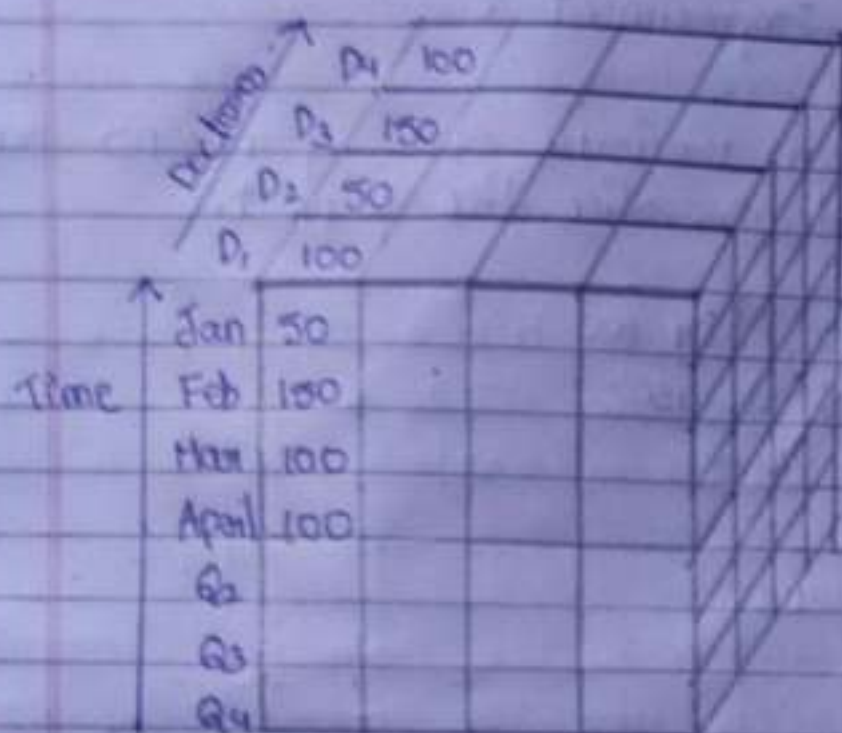 Doctors
D4 100
D3 150
D2 50
D1 100
Jan 50
Time Feb 150
Mar 100
April 100
Q2
Q3
Q4